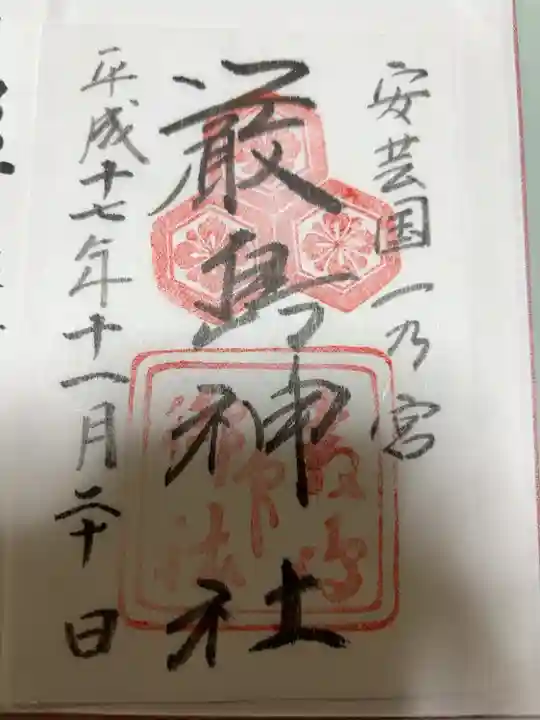 安芸国一乃宮
厳島神社
平成十七年十一月二十日